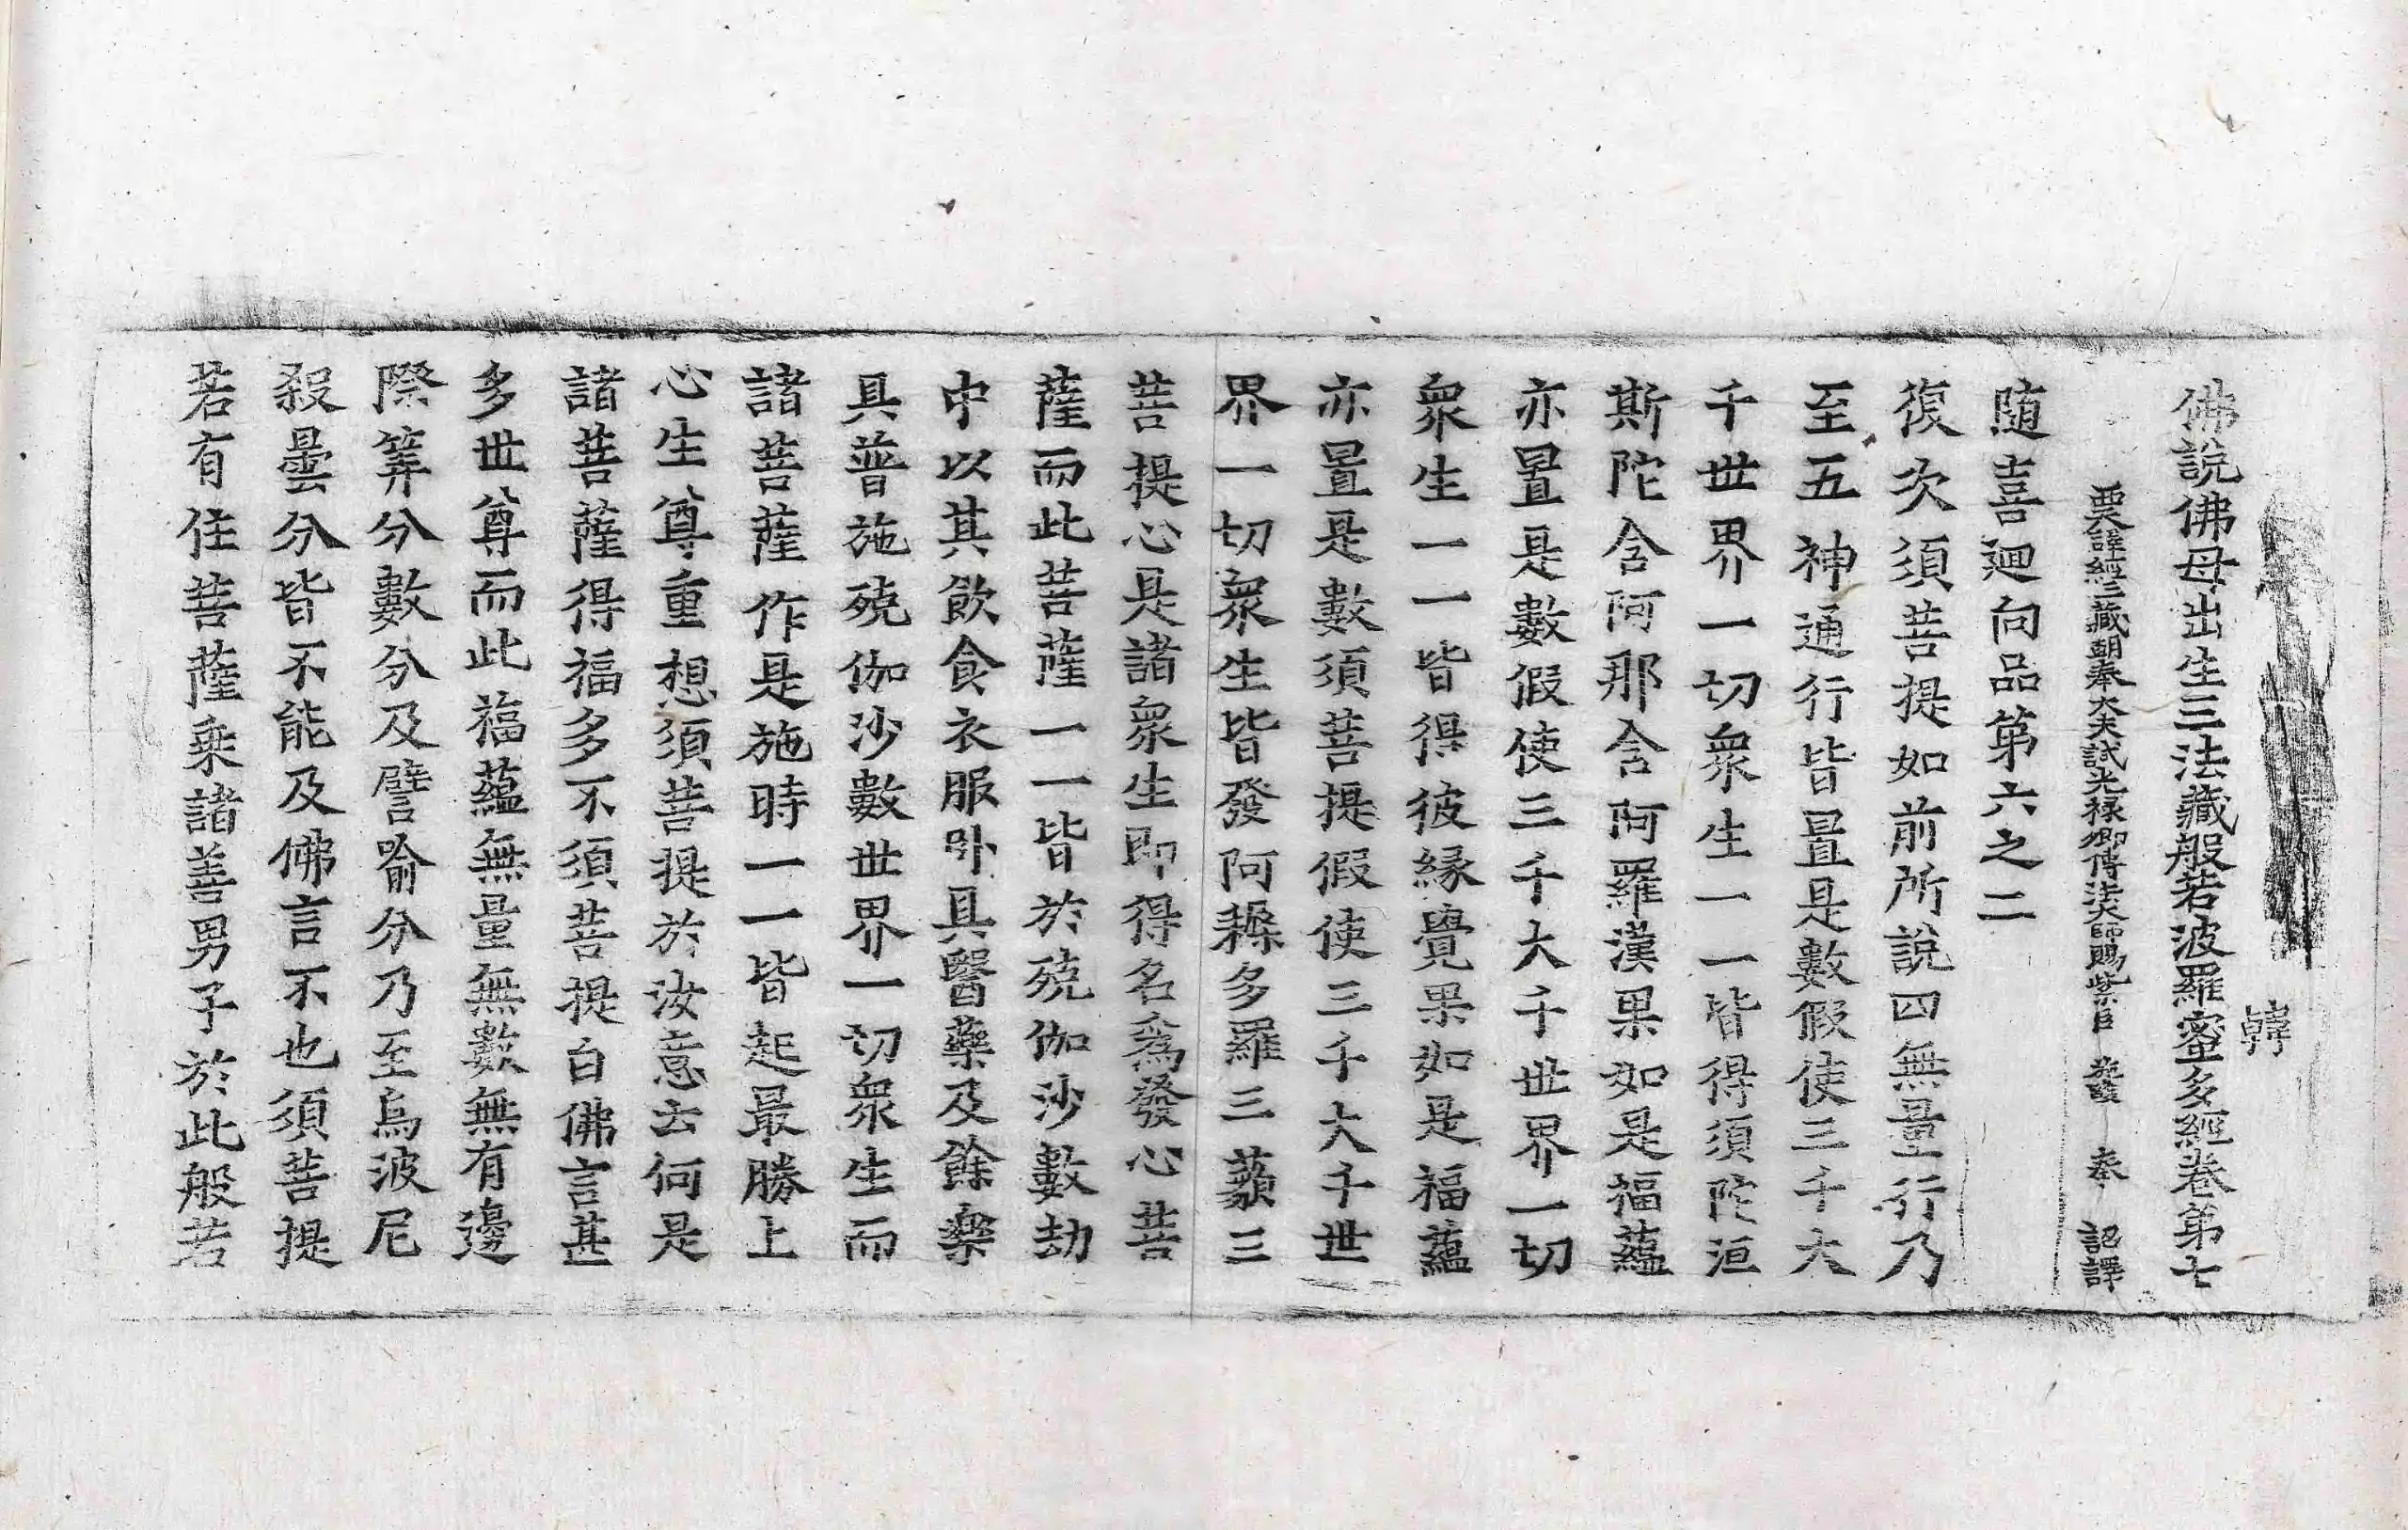 佛說佛母出生三法藏般若波羅蜜多經卷第七
韓
西天譯經三藏朝奉大夫試光祿卿傳法大師賜紫臣 施護 奉 詔譯
隨喜迴向品第六之二
復次須菩提如前所說四無量行乃
至五神通行皆置是數假使三千大
千世界一切衆生一一皆得須陀洹
斯陀含阿那含阿羅漢果如是福蘊
亦置是數假使三千大千世界一切
衆生一一皆得彼緣覺果如是福蘊
亦置是數須菩提假使三千大千世
界一切衆生皆發阿耨多羅三藐三
菩提心是諸衆生即得名爲發心菩
薩而此菩薩一一皆於殑伽沙數劫
中以其飲食衣服卧具醫藥及餘樂
具普施殑伽沙數世界一切衆生而
諸菩薩作是施時一一皆起最勝上
心生尊重想須菩提於汝意云何是
諸菩薩得福多不須菩提白佛言甚
多世尊而此福蘊無量無數無有邊
際筭分數分及譬喻分乃至烏波尼
殺曇分皆不能及佛言不也須菩提
若有住菩薩乘諸善男子於此般若